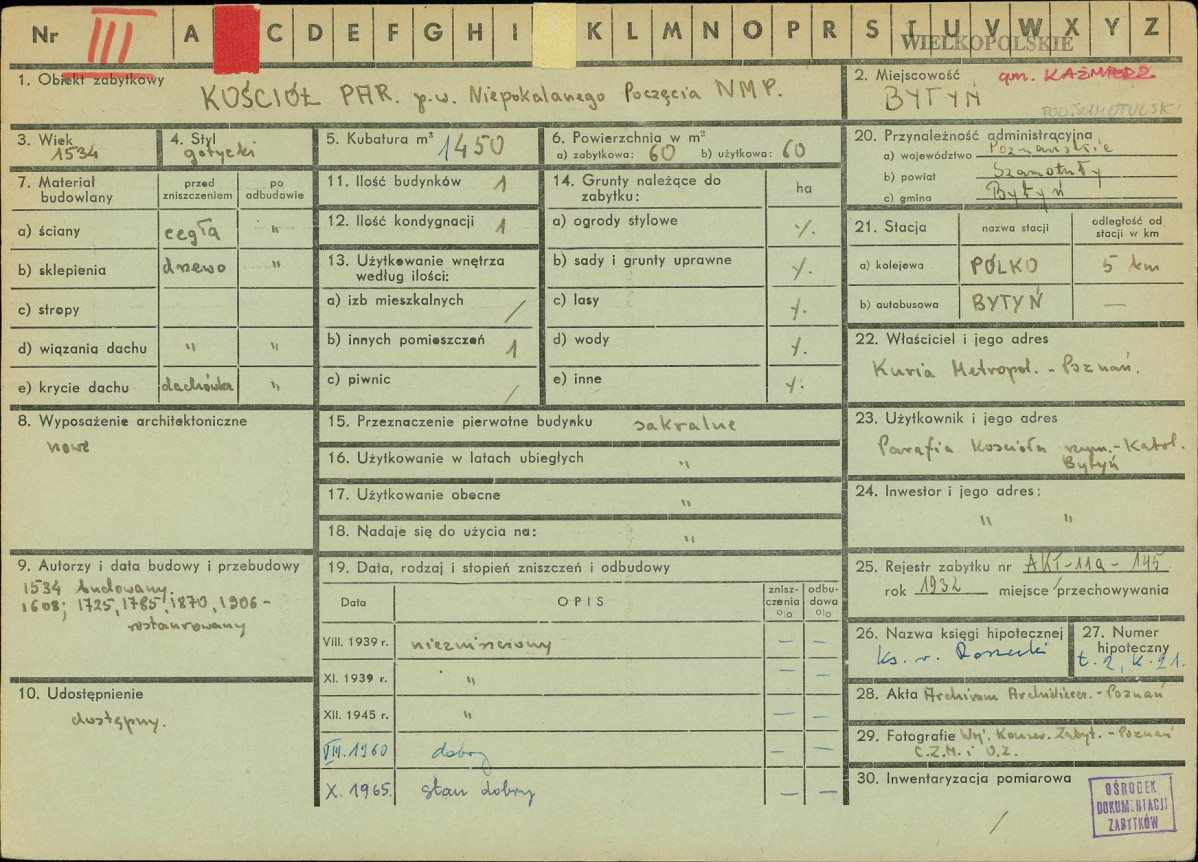 Nr III A C D E F G H I K L M N O P R S T U V W X Y Z
WIELKOPOLSKIE
1. Obiekt zabytkowy
KOŚCIÓŁ PAR. p.w. Niepokalanego Poczęcia NMP.
2. Miejscowość gm. KAŹMIERZ
BYTYŃ
POW. SZAMOTULSKI
3. Wiek
1534
4. Styl
gotycki
5. Kubatura m³ 1450
6. Powierzchnia w m²
a) zabytkowa: 60 b) użytkowa: 60
7. Materiał budowlany
przed zniszczeniem
po odbudowie
a) ściany cegła "
b) sklepienia drzewo "
c) stropy
d) wiązania dachu " "
e) krycie dachu dachówka "
8. Wyposażenie architektoniczne
nowe
9. Autorzy i data budowy i przebudowy
1534 budowany.
1608; 1725, 1785, 1870, 1906 -
restaurowany
10. Udostępnienie
dostępny.
11. Ilość budynków 1
12. Ilość kondygnacji 1
13. Użytkowanie wnętrza
według ilości:
a) izb mieszkalnych /
b) innych pomieszczeń 1
c) piwnic /
14. Grunty należące do
zabytku:
ha
a) ogrody stylowe
b) sady i grunty uprawne
c) lasy
d) wody
e) inne
15. Przeznaczenie pierwotne budynku sakralne
16. Użytkowanie w latach ubiegłych "
17. Użytkowanie obecne "
18. Nadaje się do użycia na: "
19. Data, rodzaj i stopień zniszczeń i odbudowy
Data
OPIS
znisz-
czenia
%
odbu-
dowa
%
VIII. 1939 r. niezniszczony — —
XI. 1939 r. " —
XII. 1945 r. " — —
VIII. 1960 dobry — —
X. 1965. stan dobry — —
20. Przynależność administracyjna
a) województwo Poznańskie
b) powiat Szamotuły
c) gmina Bytyń
21. Stacja
nazwa stacji
odległość od
stacji w km
a) kolejowa POLKO 5 km
b) autobusowa BYTYŃ —
22. Właściciel i jego adres
Kuria Metropol. - Poznań.
23. Użytkownik i jego adres
Parafia Kościoła rzym.-Katol.
Bytyń
24. Inwestor i jego adres:
" "
25. Rejestr zabytku nr AKI-11a-145
rok 1932 miejsce przechowywania
26. Nazwa księgi hipotecznej
ks. w.
27. Numer
hipoteczny
t. 2, k. 21.
28. Akta Archiwum Archidiecez. - Poznań
29. Fotografie Woj. Konser. Zabyt. - Poznań
C.Z.M. i O.Z.
30. Inwentaryzacja pomiarowa
/
OŚRODEK
DOKUMENTACJI
ZABYTKÓW